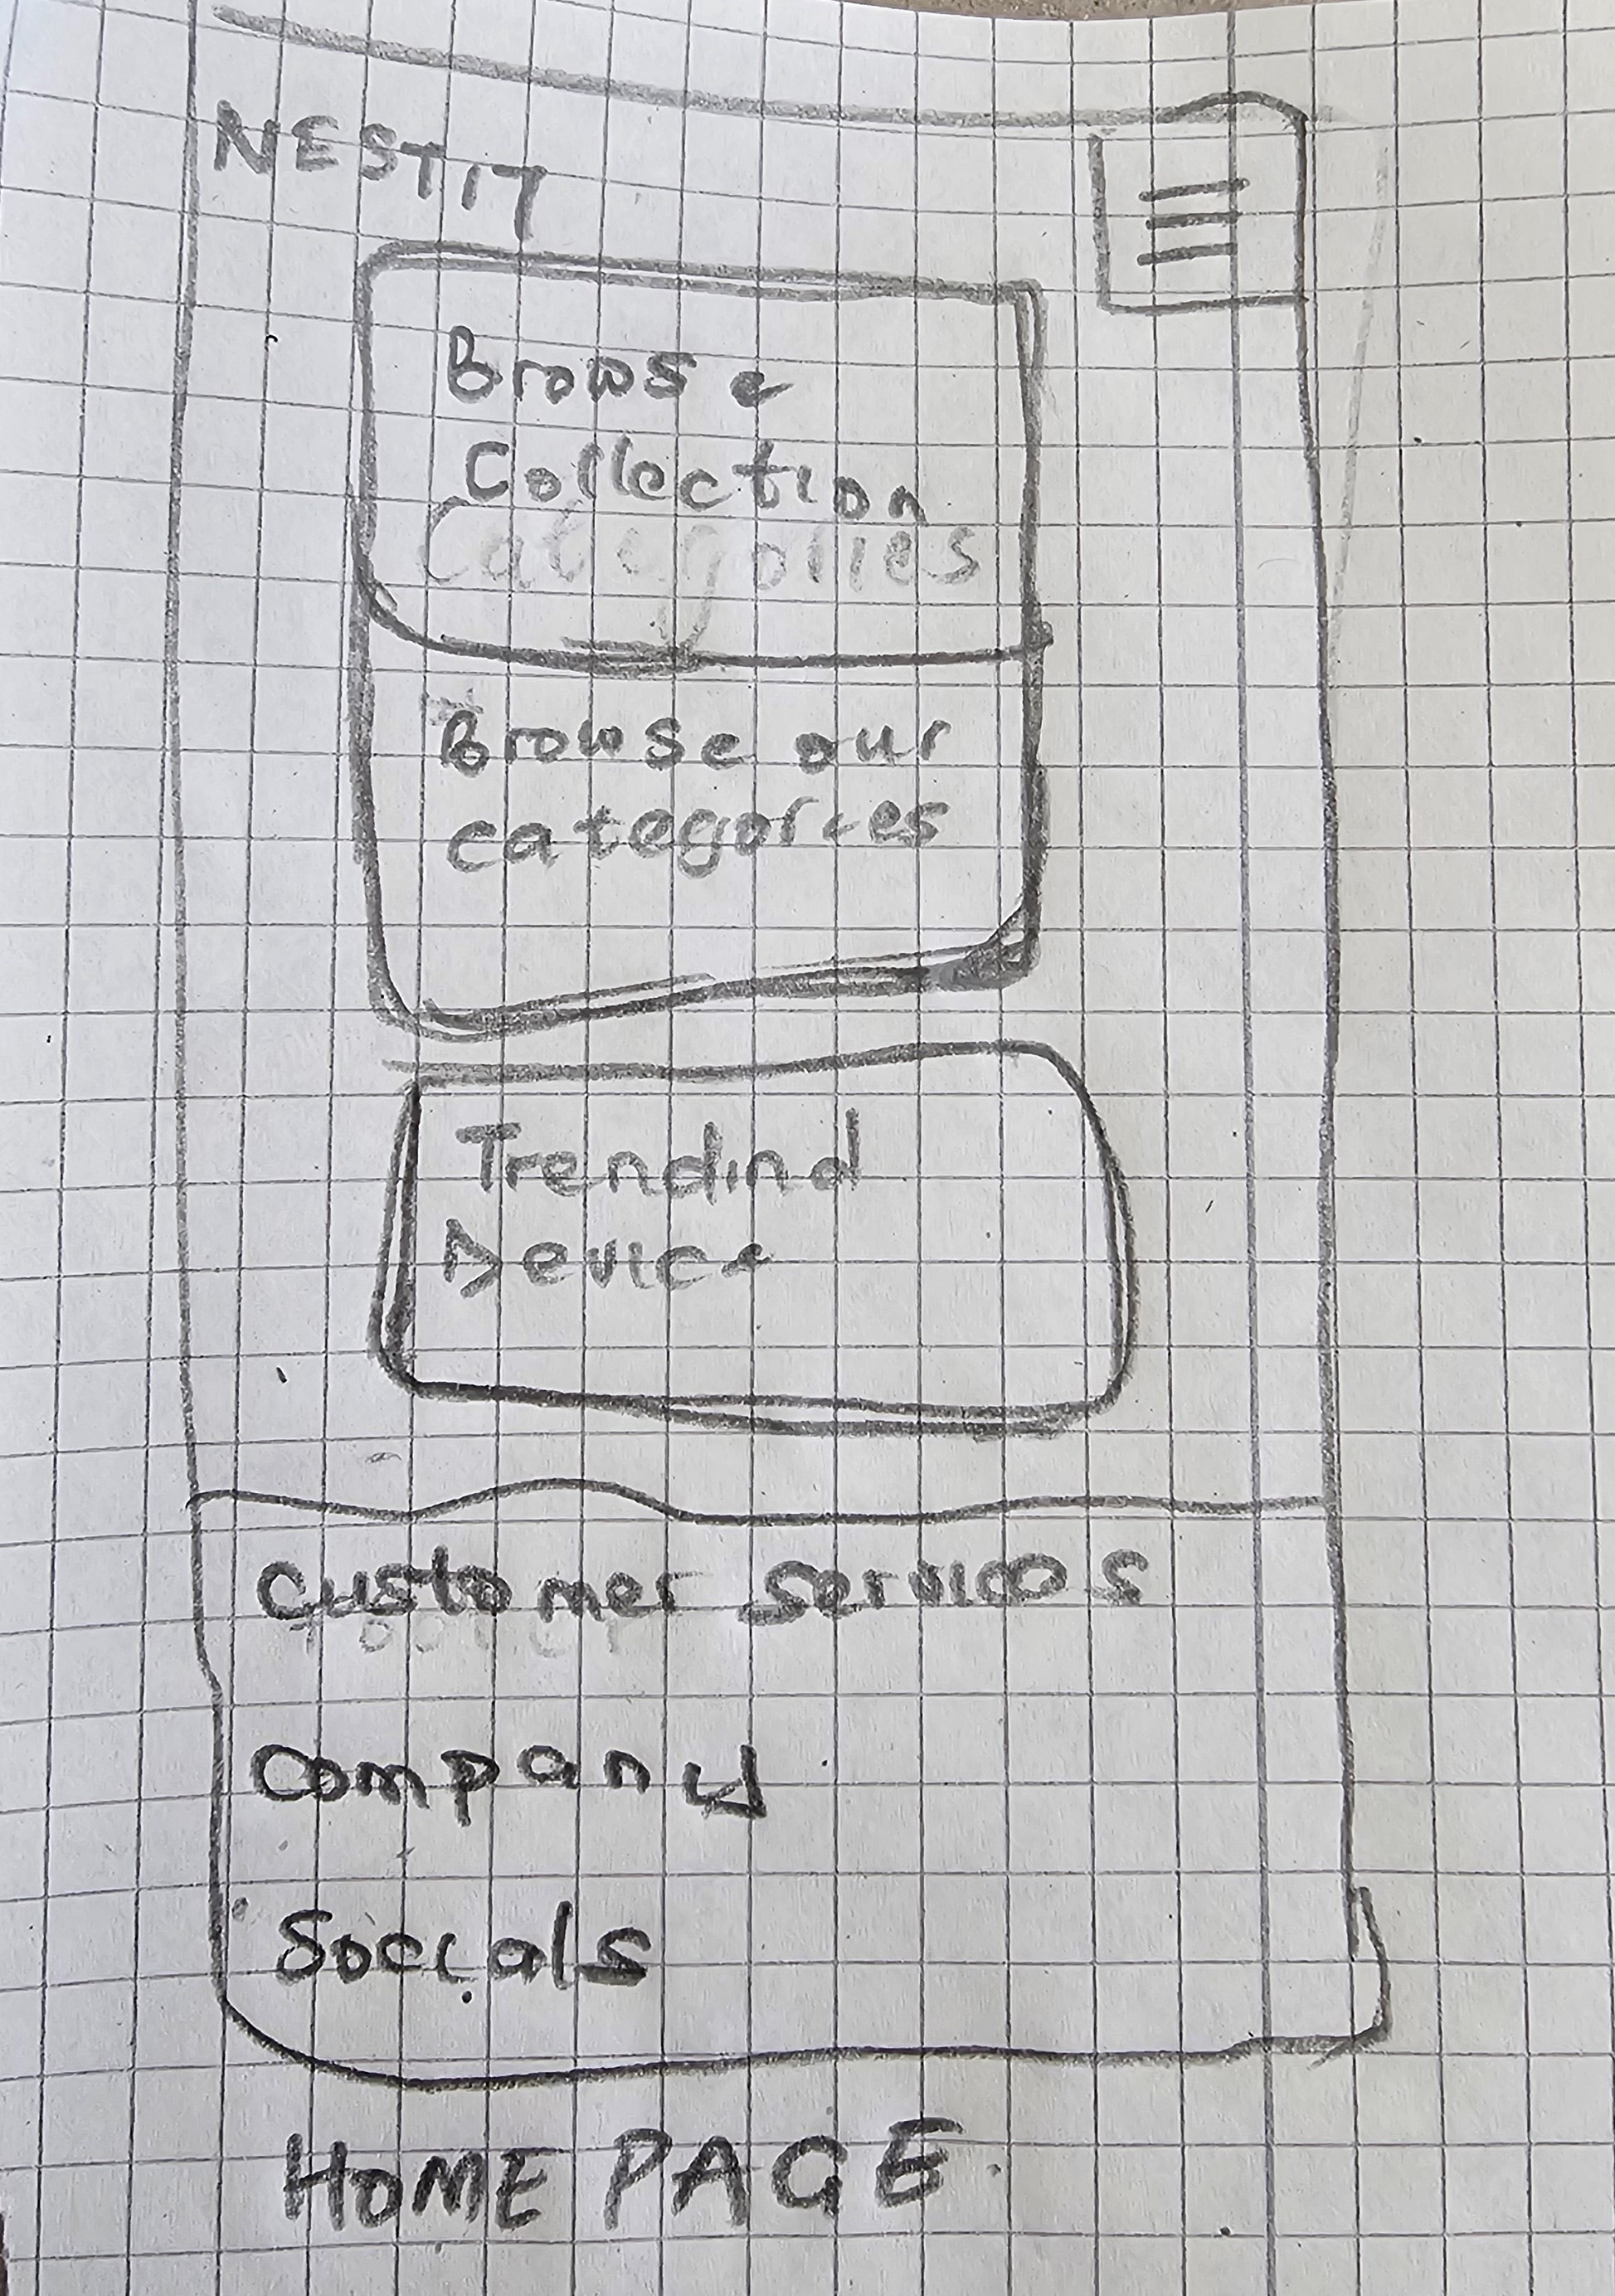 NESTIT
Browse
Collection
Categories
Browse our
categories
Trendind
Device
Customer services
footer
Company
Socials
HOME PAGE